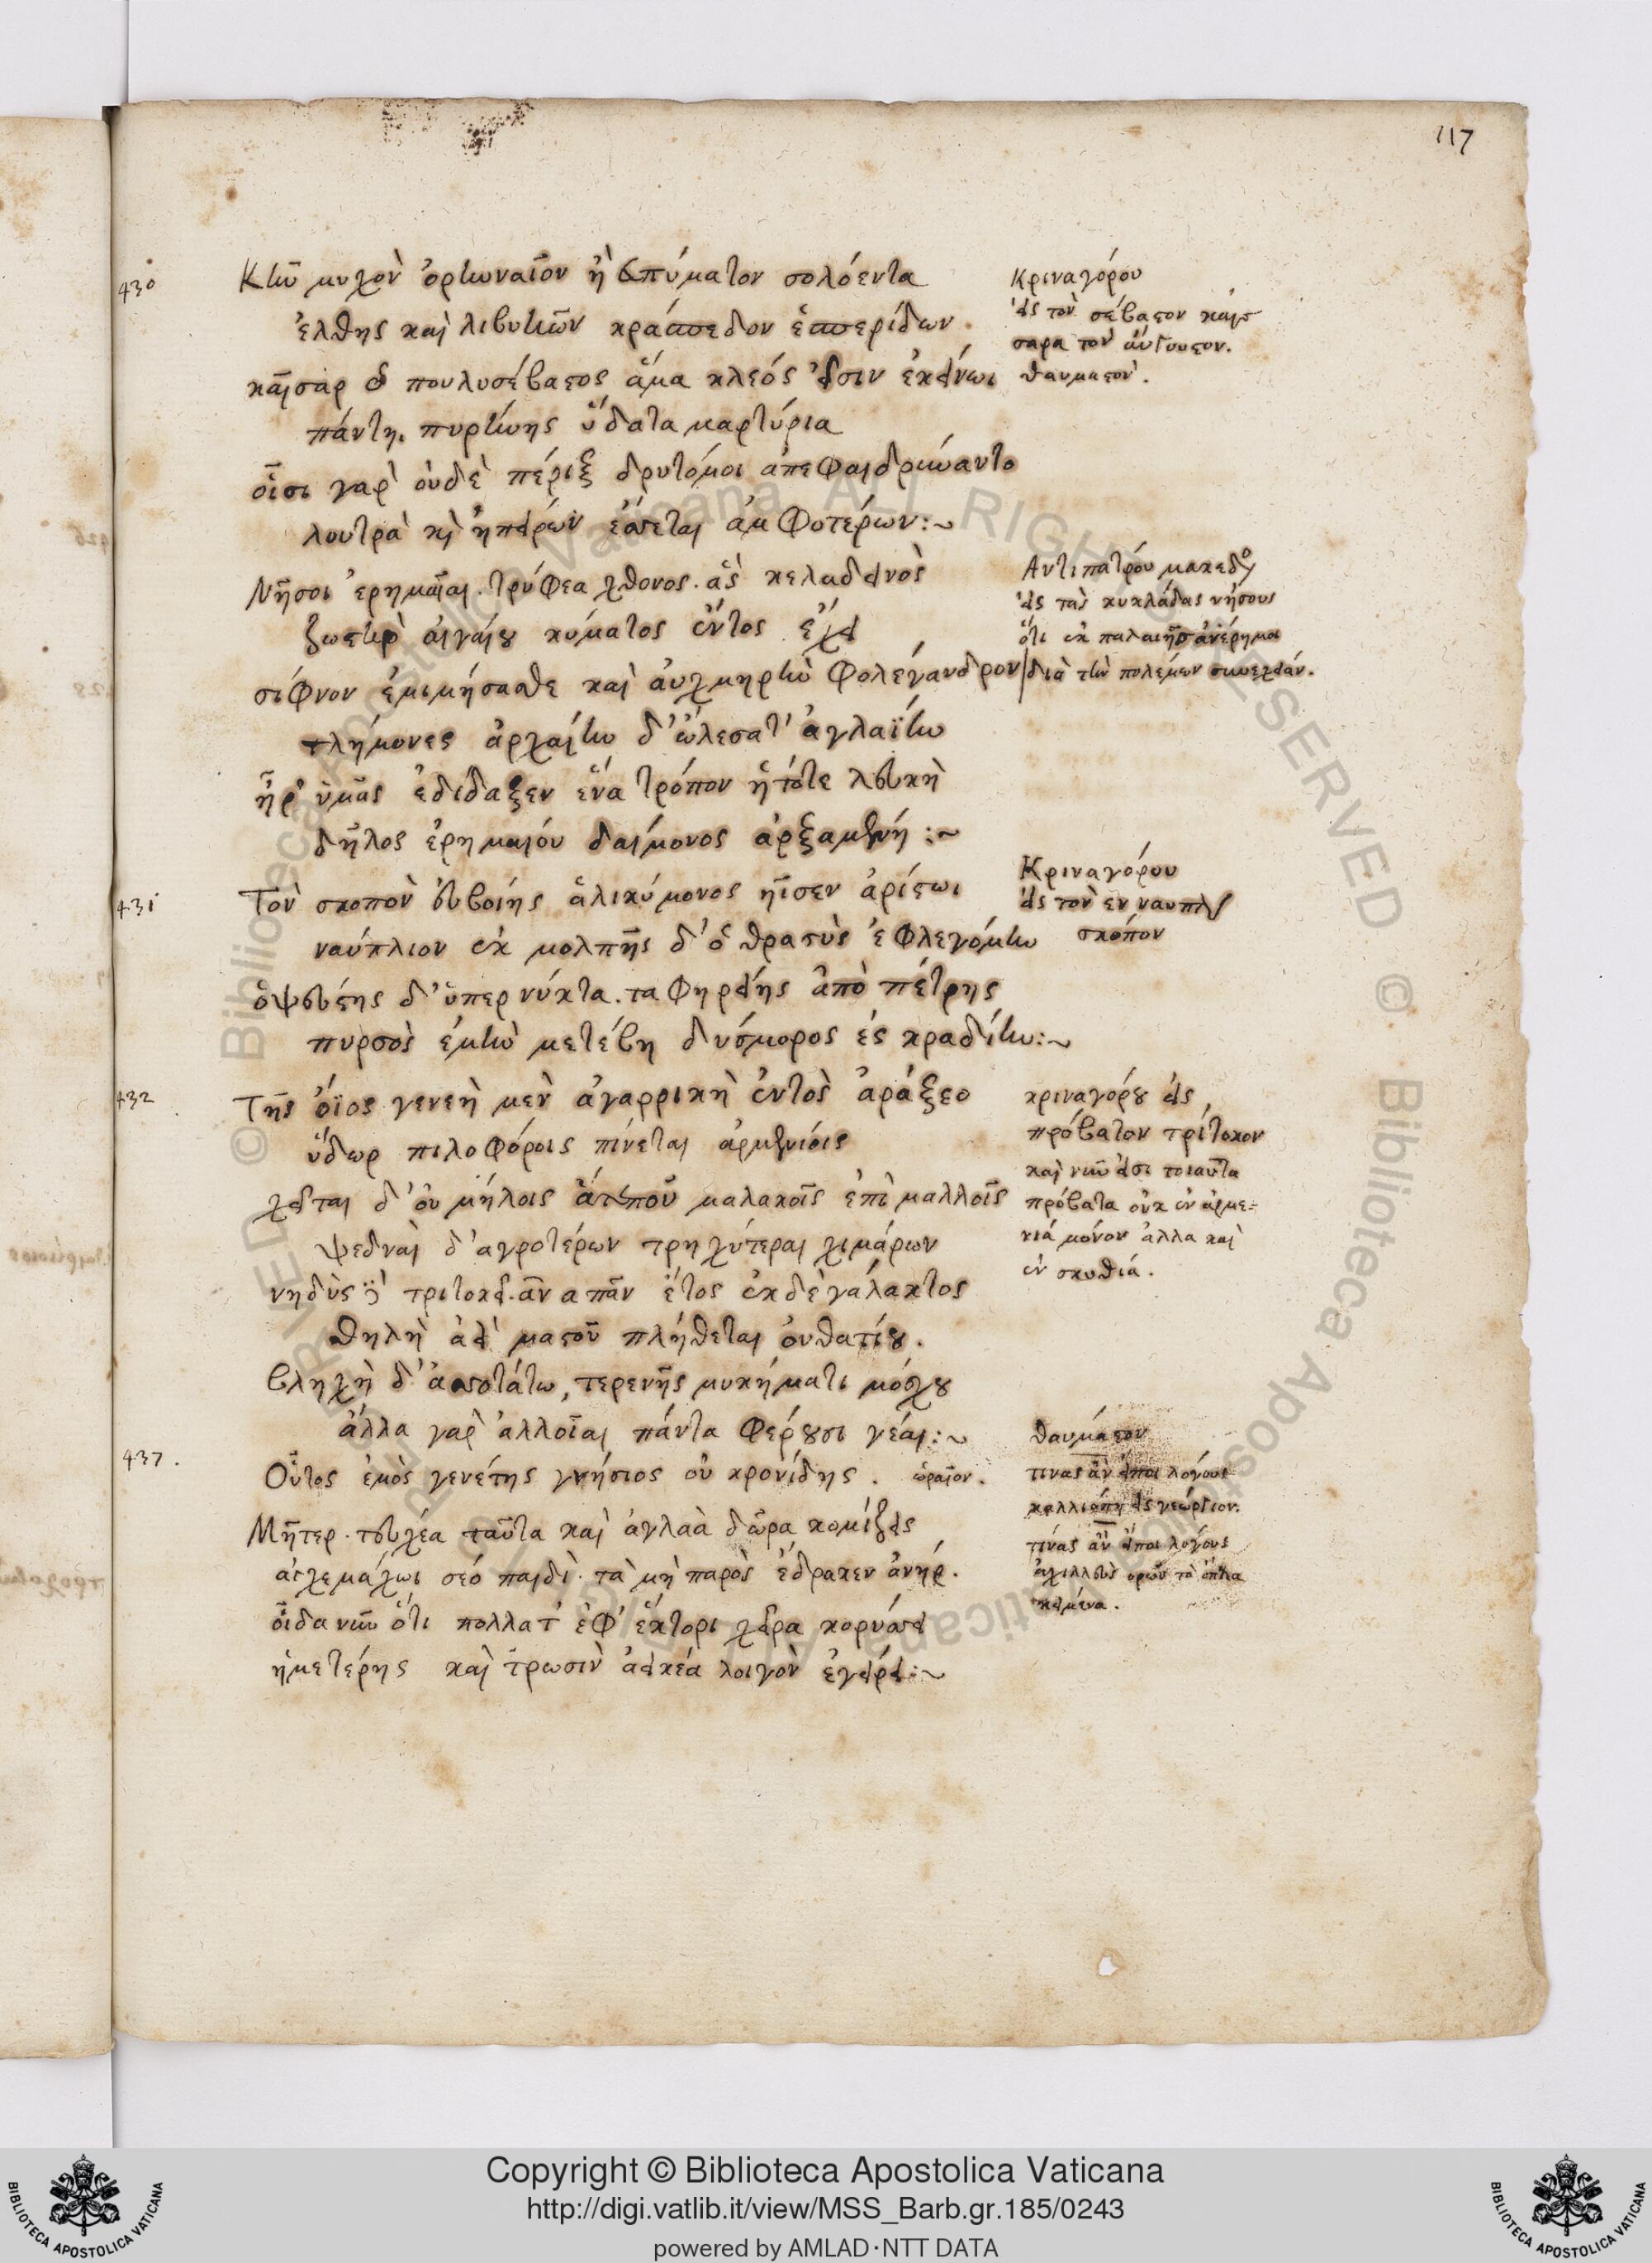 117
430
Κἢν μυχὸν ὀρκυναῖον ἢ ἐς πύματον σολόεντα
ἔλθης καὶ λιβυκῶν κράσπεδον ἑσπερίδων.
καῖσαρ ὁ πουλυσέβαστος ἅμα κλεός εἶσιν ἐκείνωι
πάντη. πυρήνης ὕδατα μαρτύρια
οἷσι γαρ οὐδὲ πέριξ δρυτόμοι ἀπεφαιδρύναντο
λουτρὰ κὶ ἠπείρων ἔσσεται ἀμφοτέρων:~
Κριναγόρου
εἰς τὸν σέβαστον καί-
σαρα τὸν αὔγουστον.
θαυμαστόν.
Νῆσοι ἐρημαῖαι. τρύφεα χθονος. ἃς κελαδεινὸς
ζωστὴρ αἰγαίου κύματος ἐντος ἔχει
σίφνον ἐμιμήσασθε καὶ αὐχμηρὴν φολέγανδρον
τλήμονες ἀρχαίην δ' ὠλέσατ' ἀγλαΐην
ἦρ' ὑμᾶς ἐδίδαξεν ἕνα τρόπον ἥ τότε λευκὴ
δῆλος ἐρημαιόυ δαίμονος ἀρξαμένη:~
Αντιπατρόυ μακεδο
εἰς τὰς κυκλάδας νήσους
ὅτι ἐκ παλαιῆς ἀνέρημοι
διὰ τὴν πολέμων συνεχείαν.
431
Τὸν σκοπὸν εὐβοίης ἁλικύμονος ἦισεν ἀρίστωι
ναύπλιον ἐκ μολπῆς δ' ὁ θρασὺς ἐφλεγόμην
ὁ ψεύστης δ' ὑπερ νύκτα. ταφηρείης ἀπὸ πέτρης
πυρσὸς ἐμὴν μετέβη δυσμορος ἐς κραδίην:~
Κριναγόρου
εἰς τὸν εν ναυπλ
σκόπον
432
Τῆς ὄϊος γενεὴ μεν ἀγαρρικὴ ἐντὸς ἀράξεο
ὕδωρ πιλοφόροις πίνεται ἀρμενίοις
χεῖται δ' οὐ μήλοις ἅτε που μαλακοῖς ἐπὶ μαλλοῖς
ψεδναὶ δ' αγροτέρων τρηχύτεραι χιμάρων
νηδὺς τριτοκεῖ. ἀν απᾶν ἔτος ἐκ δὲ γάλακτος
θηλὴ ἀεὶ μαστοῦ πλήθεται οὐθατίου.
βληχὴ δ' ἀσσοτάτω, τερενῆς μυκήματι μόσχου
ἄλλα γαρ ἀλλοῖαι πάντα φέρουσι γέαι:~
κριναγόρου εἰς
πρόβατον τρίτοκον
καὶ νῦν εἰσι τοιαῦτα
πρόβατα οὐκ ἐν ἀρμε-
νιά μόνον ἀλλα καὶ
ἐν σκυθία.
437.
Οὗτος ἐμὸς γενέτης γνήσιος οὐ κρονίδης. ὡραῖον.
Μῆτερ. τευχέα ταῦτα καὶ ἀγλαὰ δῶρα κομίζεις
ἀγχεμάχωι σεό παιδὶ. τὰ μὴ παρὸς ἔδρακεν ἀνήρ.
οἶδα νῦν ὅτι πολλατ' ἐφ' ἕκτορι χεῖρα κορύσσει
ἡμετέρης καὶ τρωσὶν ἀεικέα λοιγὸν ἐγείρει:~
θαυμάστον
τινας ἂν εἴποι λογους
καλλιόπη εἰς γεώργιον.
τίνας ἂν εἴποι λογους
ἀχιλλεὺς ορῶν τὸ ὁπλα
κείμενα.
Copyright © Biblioteca Apostolica Vaticana
http://digi.vatlib.it/view/MSS_Barb.gr.185/0243
powered by AMLAD·NTT DATA